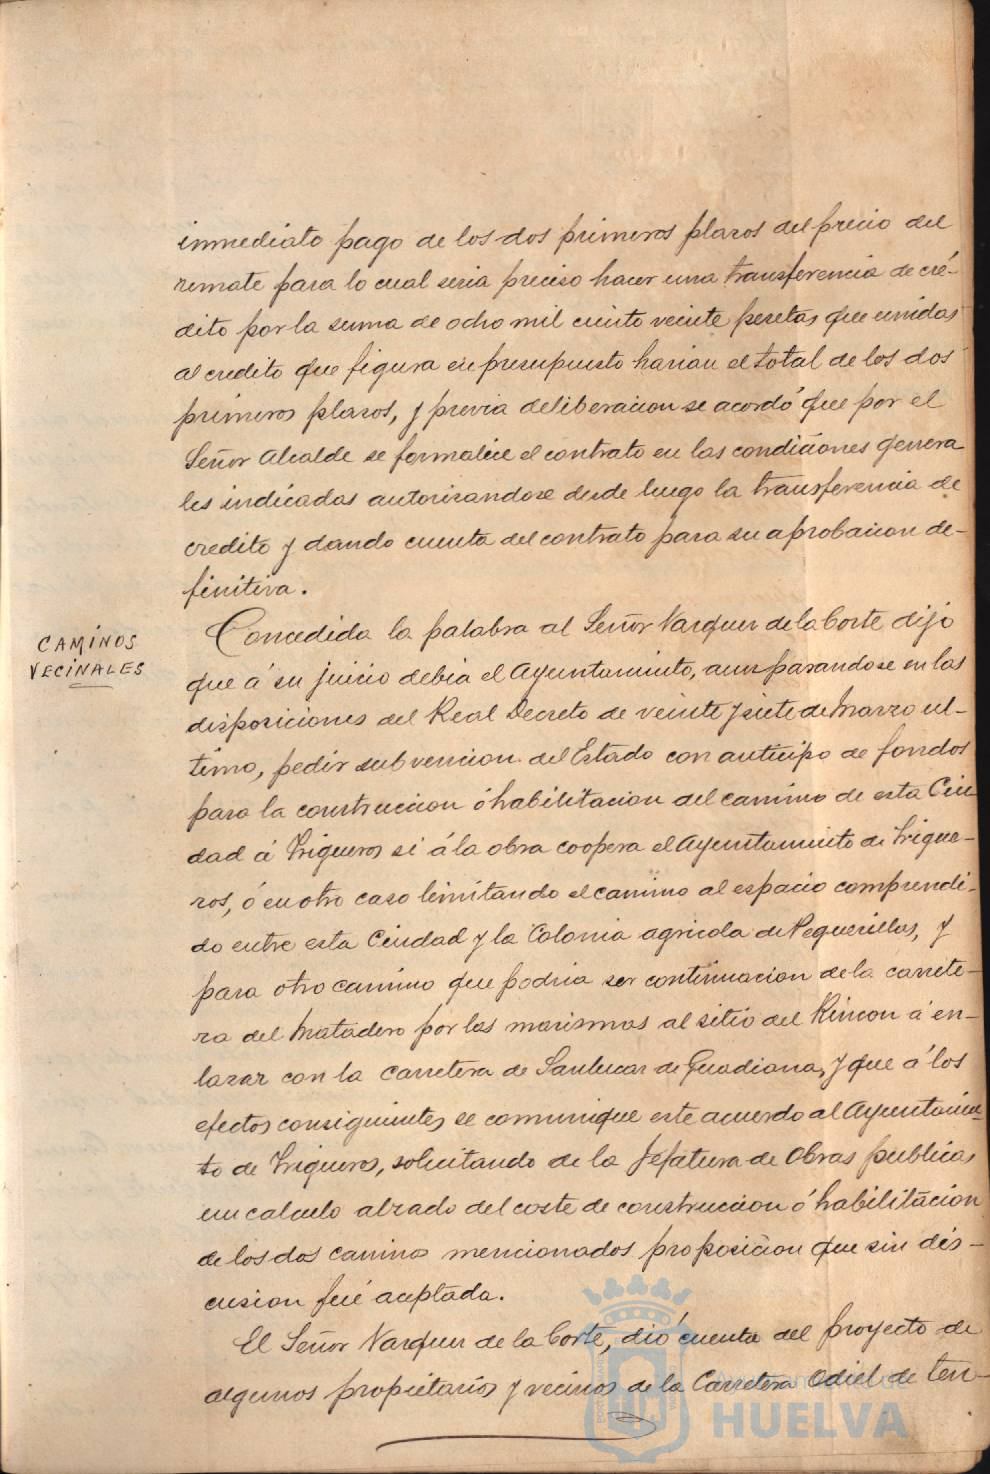 inmediato pago de los dos primeros plazos del precio del
remate para lo cual seria preciso hacer una transferencia de cré-
dito por la suma de ocho mil ciento veinte pesetas que unidas
al credito que figura en presupuesto harian el total de los dos
primeros plazos, y previa deliberacion se acordó que por el
Señor Alcalde se formalice el contrato en las condiciones genera
les indicadas autorizandose desde luego la transferencia de
credito y dando cuenta del contrato para su aprobacion de-
finitiva.
CAMINOS
VECINALES
Concedida la palabra al Señor Vazquez de la Corte dijo
que á su juicio debia el Ayuntamiento, amparandose en las
disposiciones del Real Decreto de veinte y siete de Marzo ul-
timo, pedir subvencion del Estado con anticipo de fondos
para la construccion ó habilitacion del camino de esta Ciu
dad á Trigueros si á la obra coopera el Ayuntamiento de Trigue-
ros, ó en otro caso limitando el camino al espacio comprendi-
do entre esta Ciudad y la Colonia agricola de Peguerillas, y
para otro camino que podria ser continuacion de la carrete-
ra del Matadero por las marismas al sitio del Rincon á en-
lazar con la carretera de Sanlucar de Guadiana, y que á los
efectos consiguientes se comunique este acuerdo al Ayuntamien-
to de Trigueros, solicitando de la Jefatura de Obras publicas
un calculo alzado del coste de construccion ó habilitacion
de los dos caminos mencionados proposicion que sin dis-
cusion fué aceptada.
El Señor Vazquez de la Corte, dió cuenta del proyecto de
algunos propietarios y vecinos de la Carretera Odiel de ten-
Ayuntamiento de
HUELVA